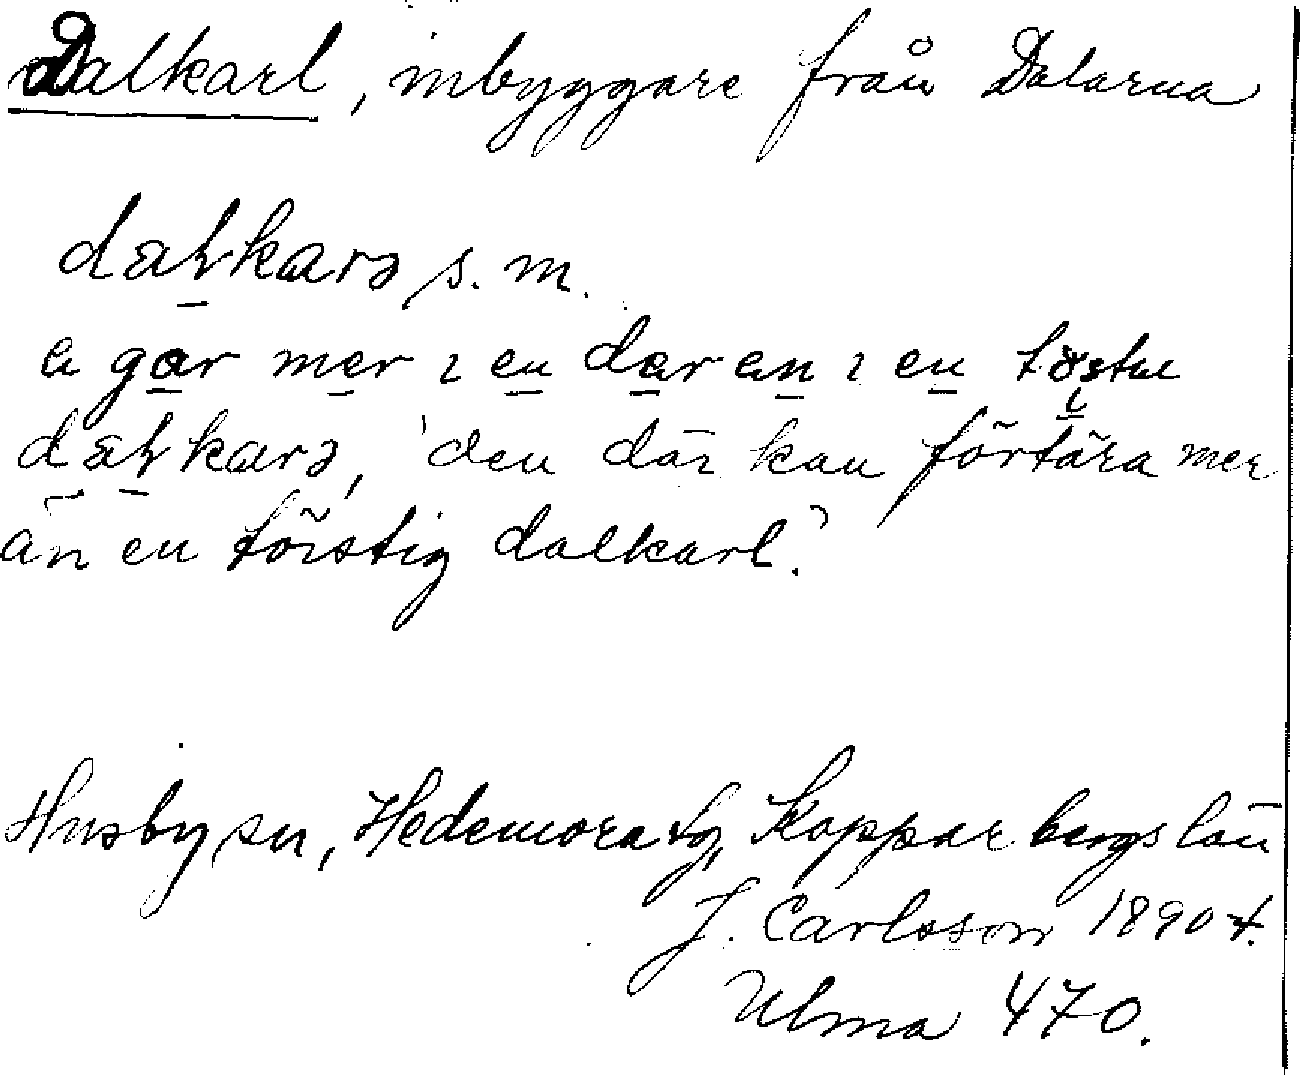 Dalkarl, inbyggare från Dalarna
daƚkarə s. m.
e gar mer ı en dar en ı en töstı
daƚkarə, 'den där kan förtära mer
än en törstig dalkarl.'
Husby sn, Hedemora tg, Kopparbergs län
J. Carlsson 1890 t.
Ulma 470.